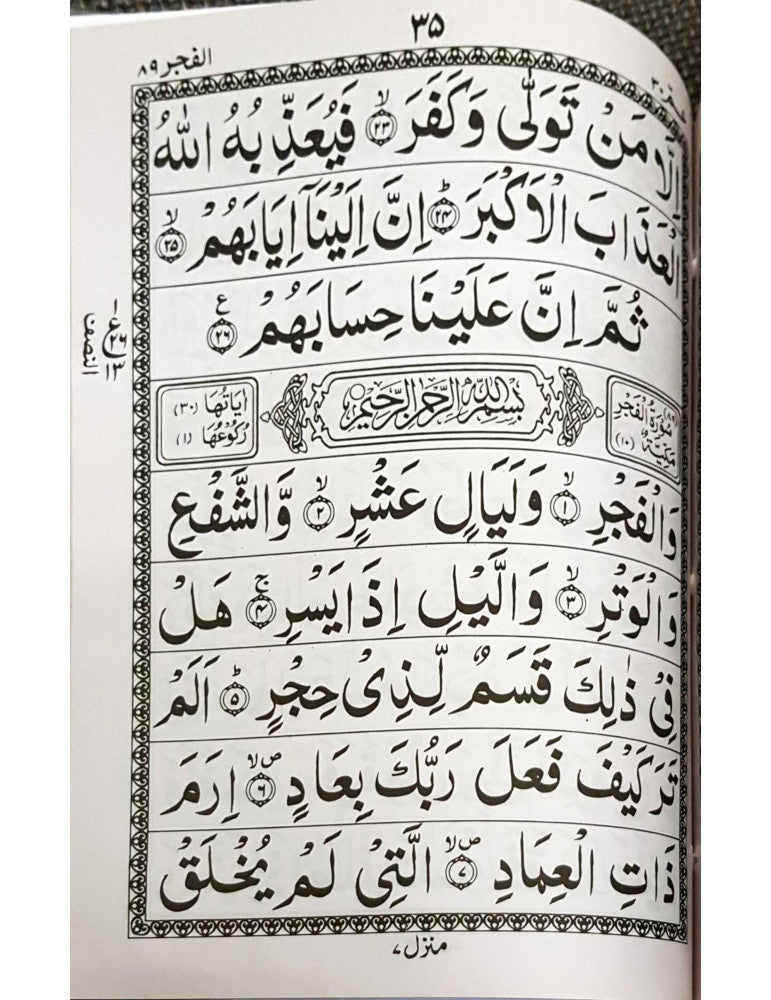 ۳۵
الفجر ۸۹
عمّ ۳۰
اِلَّا مَنْ تَوَلّٰى وَ كَفَرَ ۙ﴿۲۳﴾ فَيُعَذِّبُهُ اللّٰهُ
الْعَذَابَ الْاَكْبَرَ ؕ﴿۲۴﴾ اِنَّ اِلَيْنَاۤ اِيَابَهُمْ ۙ﴿۲۵﴾
ثُمَّ اِنَّ عَلَيْنَا حِسَابَهُمْ ﴿۲۶﴾ ع
النصف
سُوْرَةُ الْفَجْرِ (۸۹) مَكِّيَّةٌ (۱۰)
بِسْمِ اللّٰهِ الرَّحْمٰنِ الرَّحِيْمِ
اٰيَاتُهَا (۳۰) رُكُوْعُهَا (۱)
وَالْفَجْرِ ۙ﴿۱﴾ وَلَيَالٍ عَشْرٍ ۙ﴿۲﴾ وَّالشَّفْعِ
وَالْوَتْرِ ۙ﴿۳﴾ وَالَّيْلِ اِذَا يَسْرِ ۚ﴿۴﴾ هَلْ
فِىْ ذٰلِكَ قَسَمٌ لِّذِىْ حِجْرٍ ؕ﴿۵﴾ اَلَمْ
تَرَ كَيْفَ فَعَلَ رَبُّكَ بِعَادٍ ۪ۙ﴿۶﴾ اِرَمَ
ذَاتِ الْعِمَادِ ۪ۙ﴿۷﴾ الَّتِىْ لَمْ يُخْلَقْ
منزل ۷